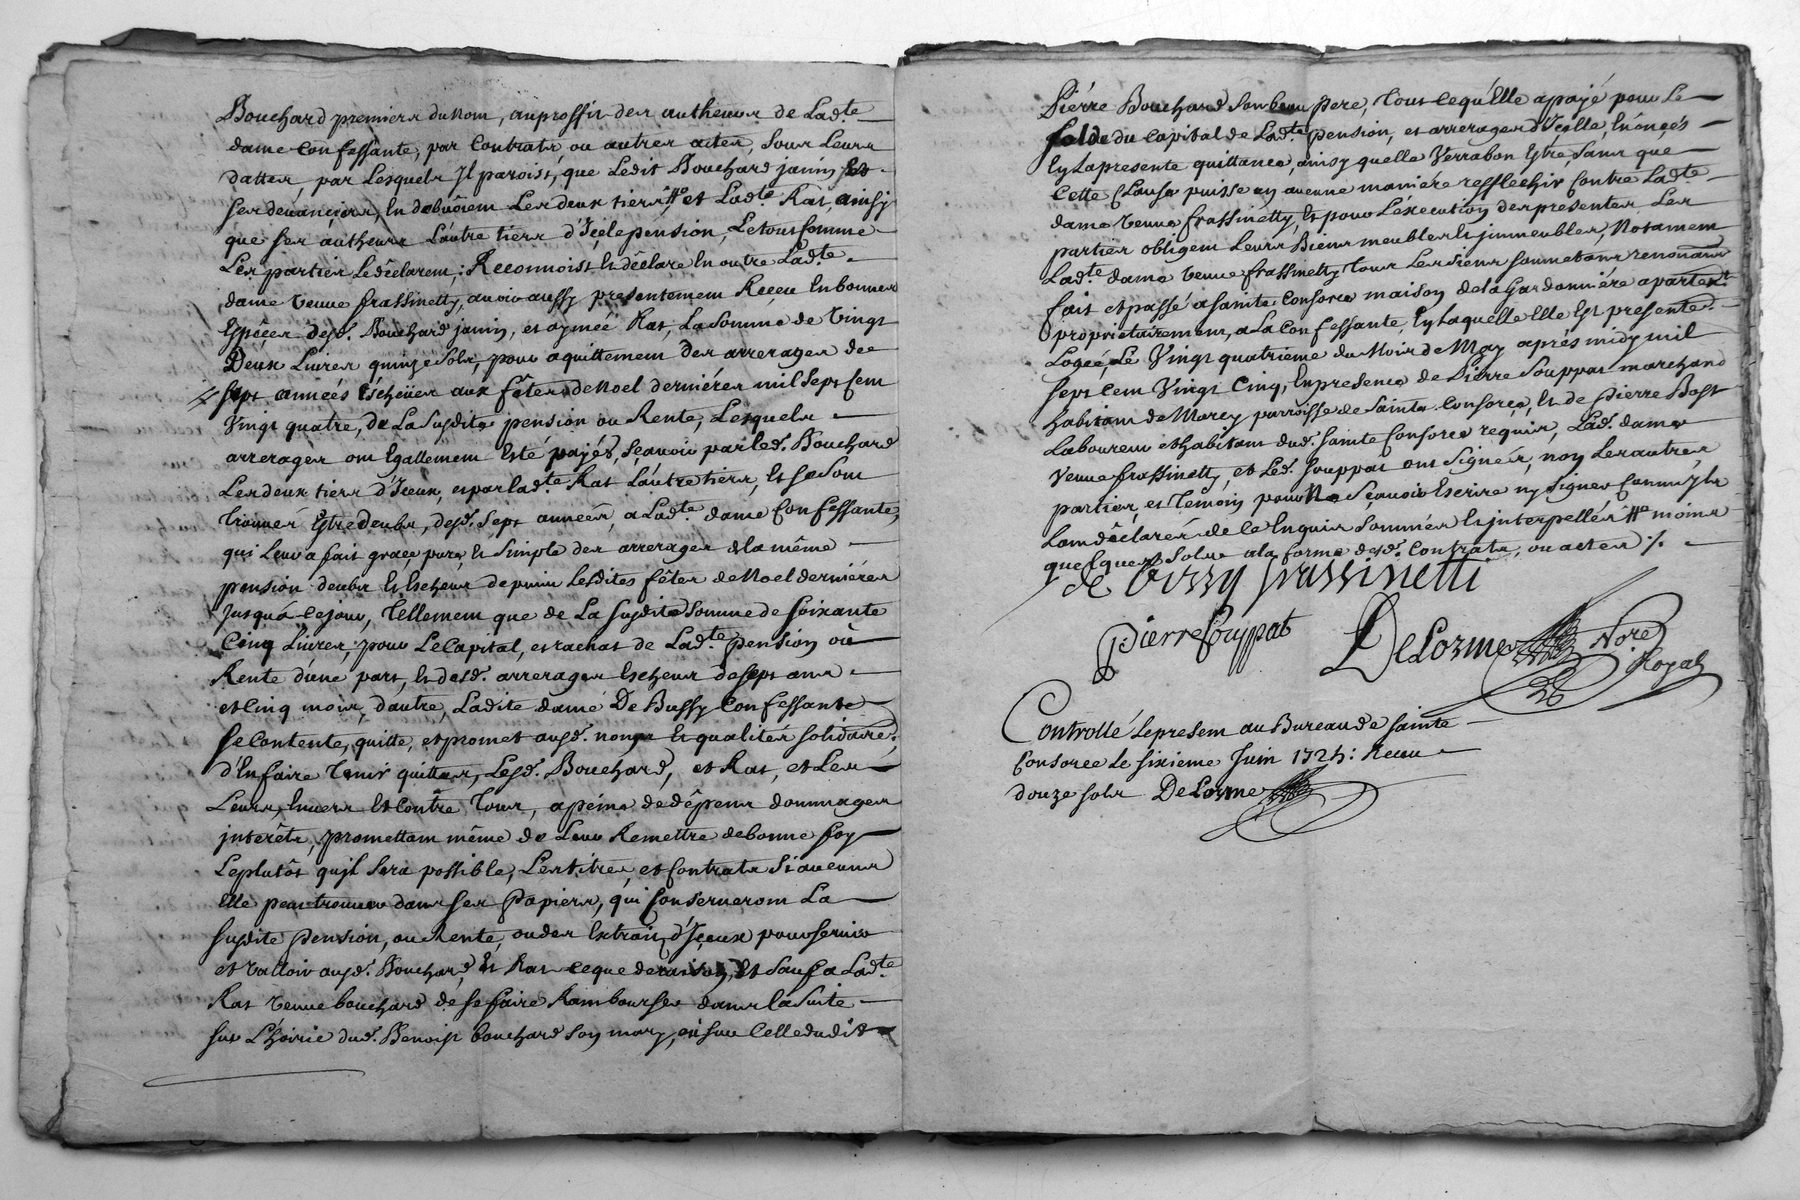 Bouchard premiers du nom, au proffit des autheurs de Lad.te
dame Confessante, par Contrats, ou autres actes, sous Leurs
dattes, par Lesquels Jl paroist, que Ledit Bouchard janin, Et
ses devanciers, En debvoient Les deux tiers, et Lad.te Rat, ainsy
que ses autheurs L'autre tiers d'Jcele pension, Le tout comme
Les parties Le dêclarent; Reconnoist Et dêclare En outre Lad.te
dame veuve frassinetty, avoir aussy presentement Reçeu En bonnes
Espêçes desd. Bouchard janin, et aymée Rat, La Somme de Vingt
Deux Livres quinze Sols, pour aquittement des arrerages de
sept années Escheües aux fêtes de Noel derniéres mil sept cent
Vingt quatre, de La Susdite pension ou Rente, Lesquels
arrerages ont Egallement Esté payés, Sçavoir par led. Bouchard
Les deux tiers d'Jceux, et par lad.te Rat L'autre tiers, Et se sont
trouvés Estre deubs, desd. Sept années, a Lad.te dame Confessante,
qui Leur a fait graçe, pure, Et Simple des arrerages de la même
pension deubs Et Escheus depuis Lesdites fêtes de Noel derniéres
Jusqu'à Cejour, Tellement que de La Susdite Somme de Soixante
Cinq Livres, pour Le Capital, et rachat de Lad.te pension ou
Rente d'une part, Et desd. arrerages Escheus de sept ans
et Cinq mois, d'autre, Ladite damé De Bussy Confessante
Se Contente, quitte, et promet ausd. noms Et qualites solidaires
d'En faire tenir quittes, Lesd. Bouchard, et Rat, et Les
Leurs, Envers Et Contre Tous, a peine de dêpens dommages
jnterêts, promettant même de Leur Remettre de bonne foy
Le plutôt qu'jl Sera possible, Les titres, et Contrats Si aucuns
Elle peut trouver dans ses Papiers, qui Conserneront La
susdite Pension, ou Rente, ou des Extraits d'Jçeux pour servir
et valloir ausd. Bouchard, Et Rat ce que de raison, Et Sauf a Lad.te
Rat veuve bouchard de se faire Rambourser dans la Suite
sur L'hoirie dud. Benoist bouchard son mary, et sur Celle dudit
Piérre Bouchard son beau Pere, tout ce qu'Elle a payé pour Le
solde du Capital de Lad.te pension, et arrerages d'Jcelle, Enonçés
En La presente quittance, ainsy quelle Verra bon Estre sans que
Cette Clause puisse en aucune maniére reffléchir Contre Lad.te
dame veuve frassinetty, Et pour L'éxecution des presentes Les
parties obligent Leurs Biens meubles Et jmmeubles, Notament
Lad.te dame veuve frassinetty tous Les siens soumettans renonans
fait et passé a sainte Consorce maison de la Gardonniére apartent
propriétairement, a La Confessante, En Laquelle Elle Est presente
Logée Le Vingt quatrieme du Mois de May aprés midy mil
sept Cent Vingt Cinq, En presence de Pierre Souppat marchand
habitant de Marcy parroisse de Sainte Consorce, Et de pierre Bost
Laboureur et habitant dud. sainte Consorce requis, Lad. dame
veuve frassinetty, et Led. souppat ont Signés, non Les autres
parties, et Témoin pour Ne Sçavoir Escrire ny signer Comme jls
L'ont dêclarés de Ce Enquis Sommés Et jnterpellés moins
quelques Sols a la forme desd. Contrats, ou actes %
de Bissy frassinetti
pierre Souppat DeLorme Nore
Royal
Controllé Le present au Bureau de Sainte
Consorce le sixieme Juin 1725: Receu
douze sols DeLorme